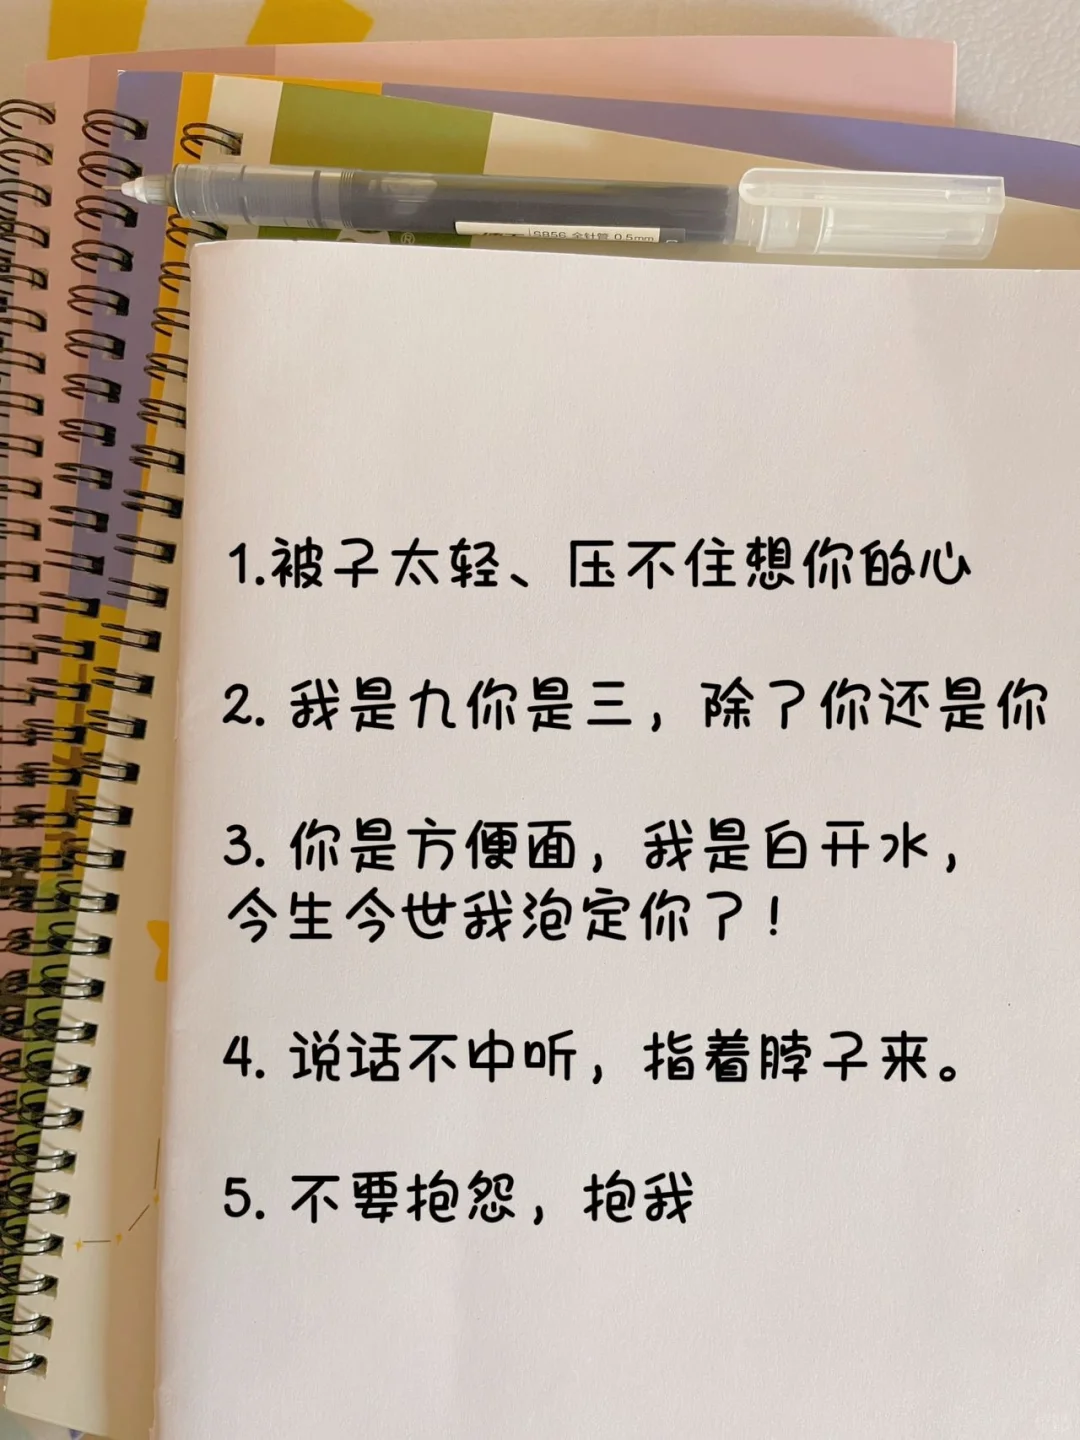 S856 全针管 0.5mm
®
1.被子太轻、压不住想你的心
2. 我是九你是三，除了你还是你
3. 你是方便面，我是白开水，
今生今世我泡定你了！
4. 说话不中听，指着脖子来。
5. 不要抱怨，抱我